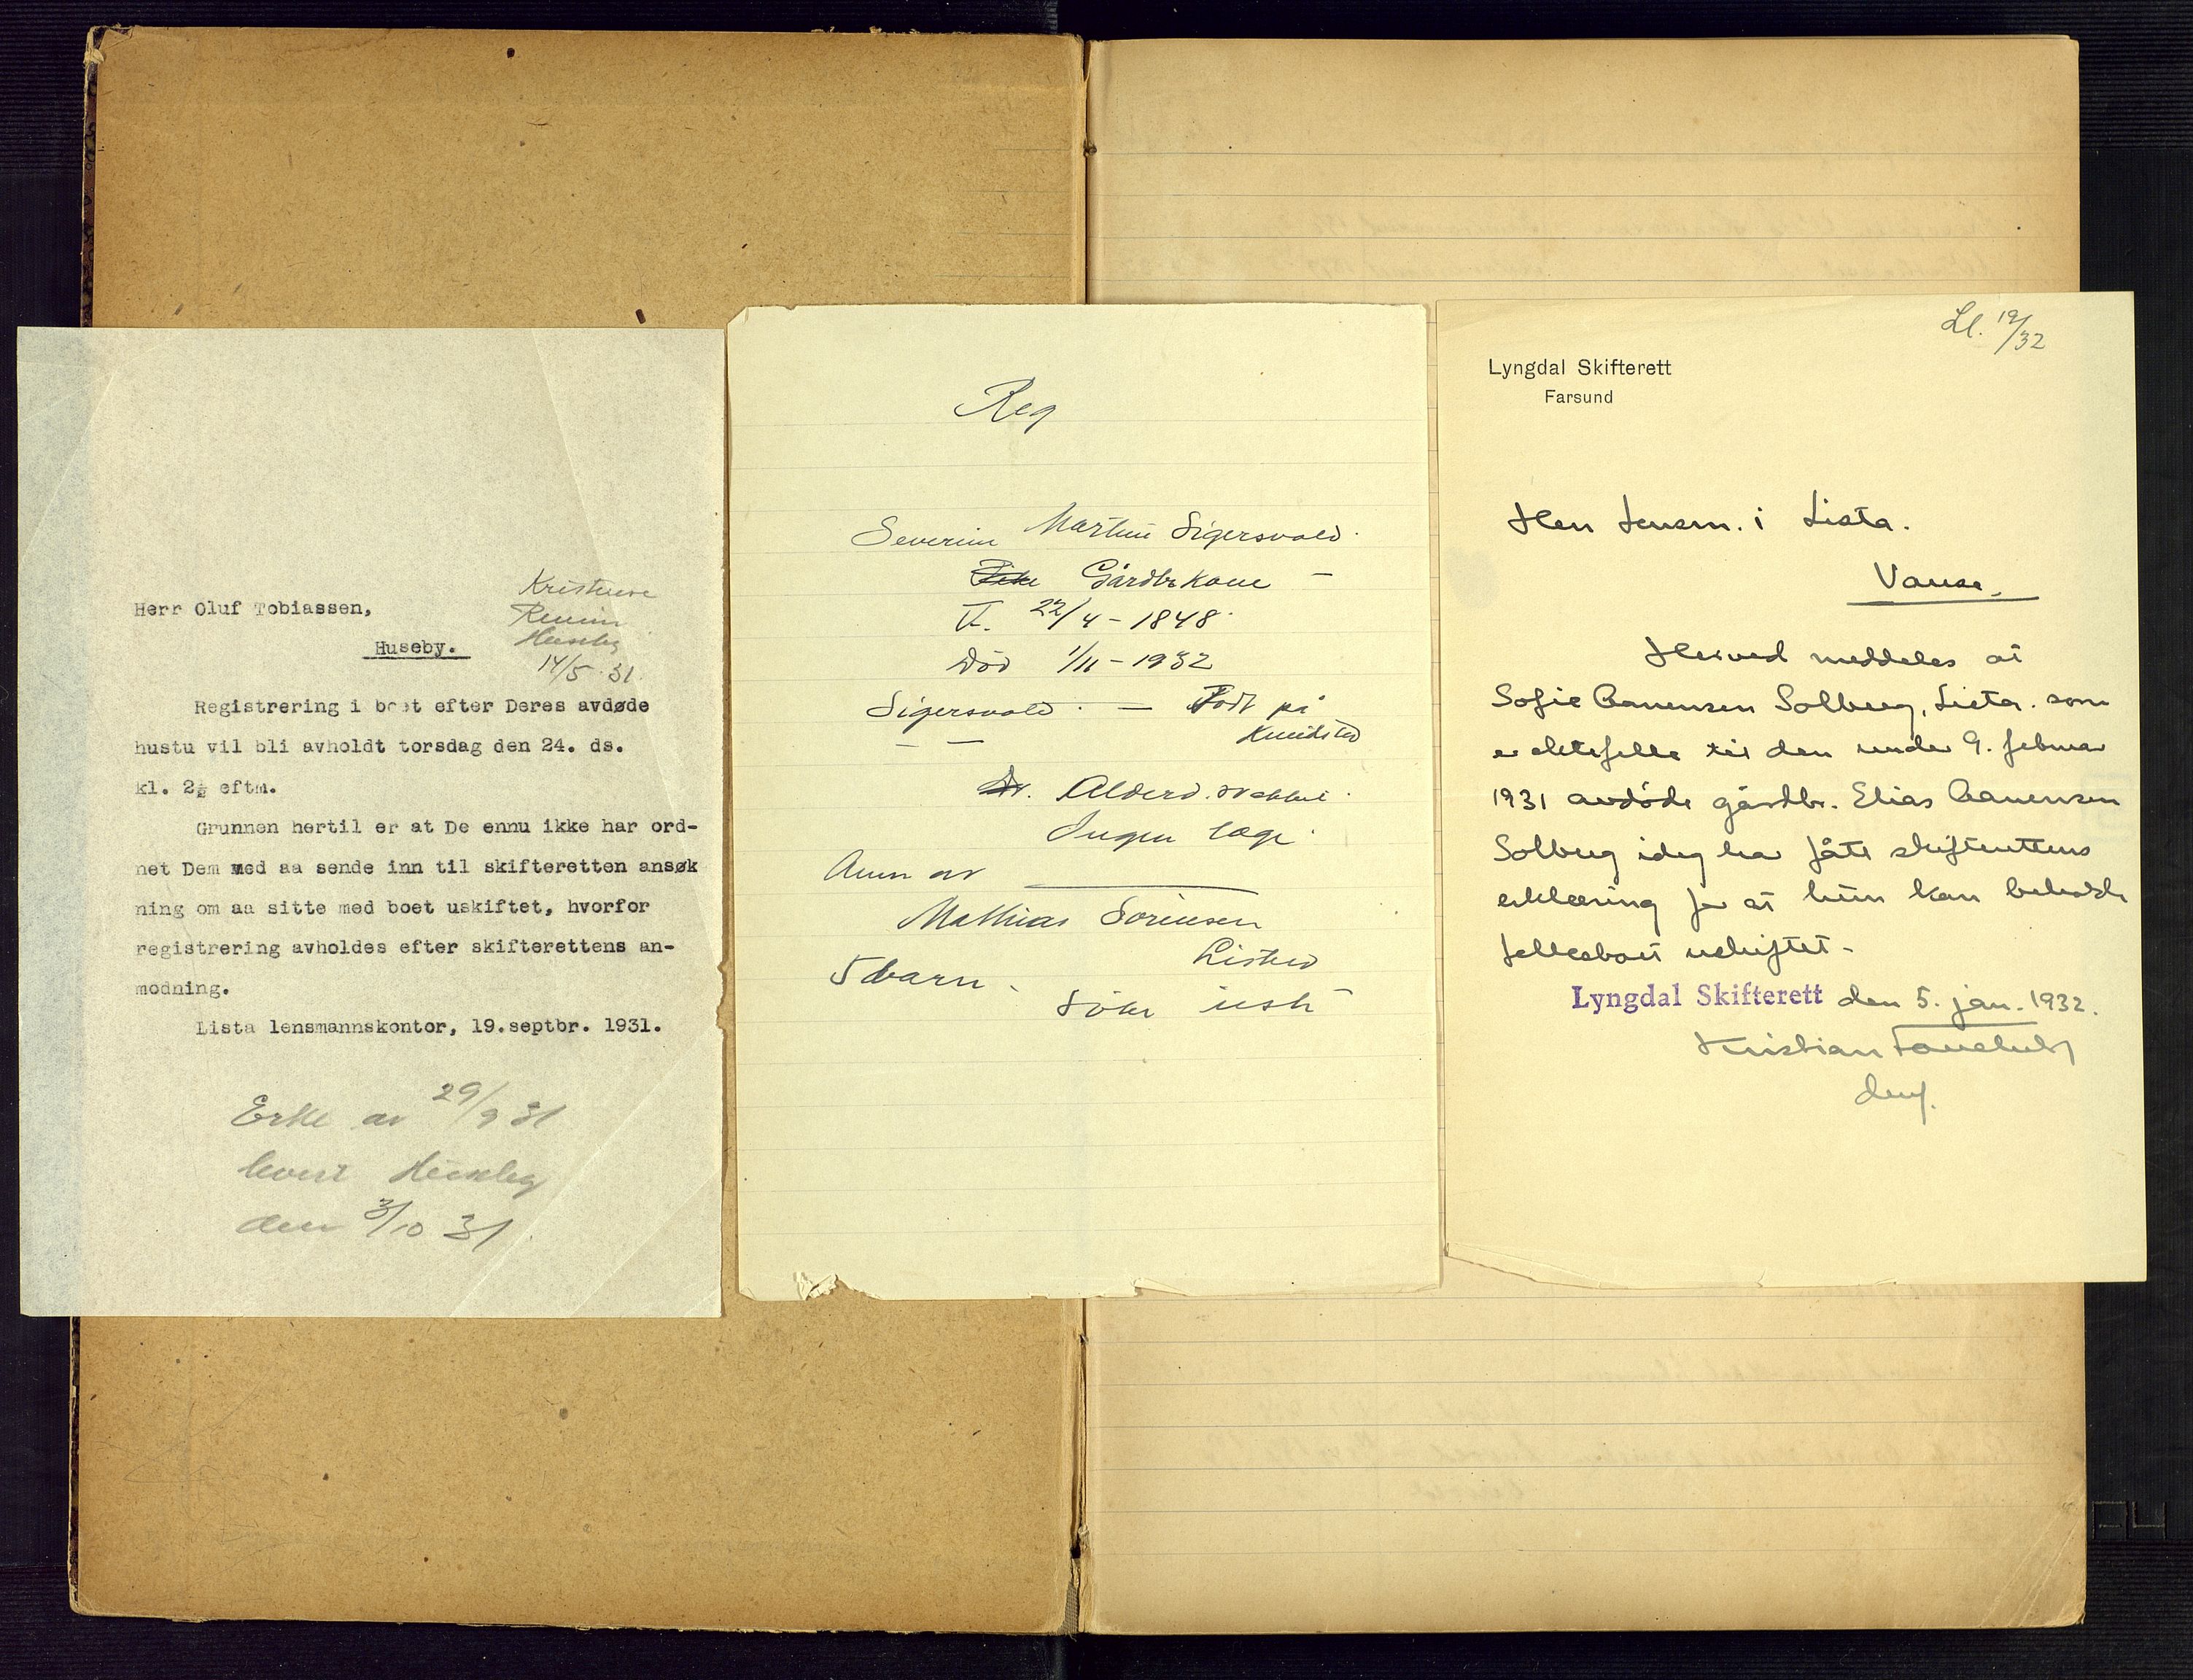 Herr Oluf Tobiassen,
Huseby.
Kristene
Huseby
14/5 31.
Registrering i boet efter Deres avdøde
hustu vil bli avholdt torsdag den 24. ds.
kl. 2½ eftm.
Grunnen hertil er at De ennu ikke har ord-
net Dem med aa sende inn til skifteretten ansøk
ning om aa sitte med boet uskiftet, hvorfor
registrering avholdes efter skifterettens an-
modning.
Lista lensmannskontor, 19.septbr. 1931.
Erkl av 29/9 31
levert Huseby
den 3/10 31
Reg
Severine Martine Sigersvold.
Gårdbr kone -
F. 22/4 - 1848.
Død 1/11 - 1932
Sigersvold. — Født på
— — Knudsted
Dr. Alderd. svakhet.
Ingen læge.
Anm av
Mathias Sørensen
Listeid
5 barn.
Søker usk
Ll. 19/32
Lyngdal Skifterett
Farsund
Herr lensm. i Lista.
Vanse.
Herved meddeles at
Sofie Aanensen Solberg, Lista. som
er ektefelle til den under 9. februar
1931 avdøde gårdbr. Elias Aanensen
Solberg idag har fått skifterettens
erklæring for at hun kan beholde
fellesboet uskiftet -
Lyngdal Skifterett den 5. jan. 1932.
Kristian